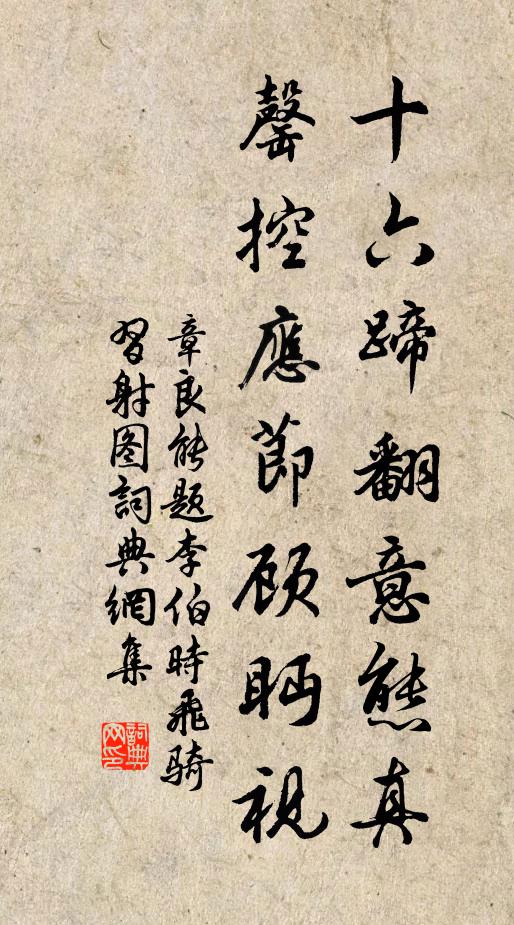 十六蹄翻意態真
罄控應節顧眄視
章良能題李伯時飛騎
習射图詞典網集
詞典网印